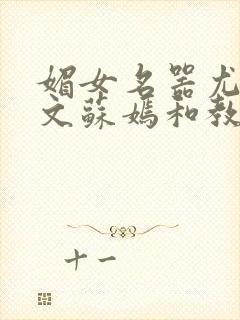 媚女名器尤
文蘇媽和教
十一